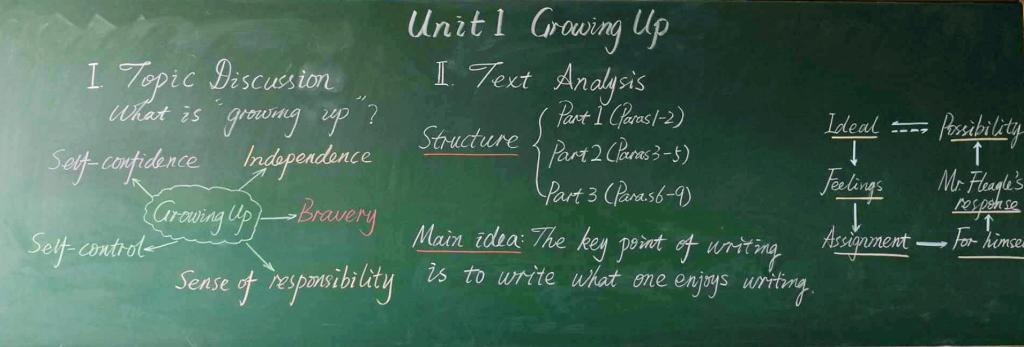 Unit 1 Growing Up
I. Topic Discussion
What is "growing up"?
Self-confidence
Independence
Growing Up
Bravery
Self-control
Sense of responsibility
II. Text Analysis
Structure
Part 1 (Paras1-2)
Part 2 (Paras3-5)
Part 3 (Paras6-9)
Main idea: The key point of writing
is to write what one enjoys writing.
Ideal
Possibility
Feelings
Mr Fleagle's
response
Assignment
For himse